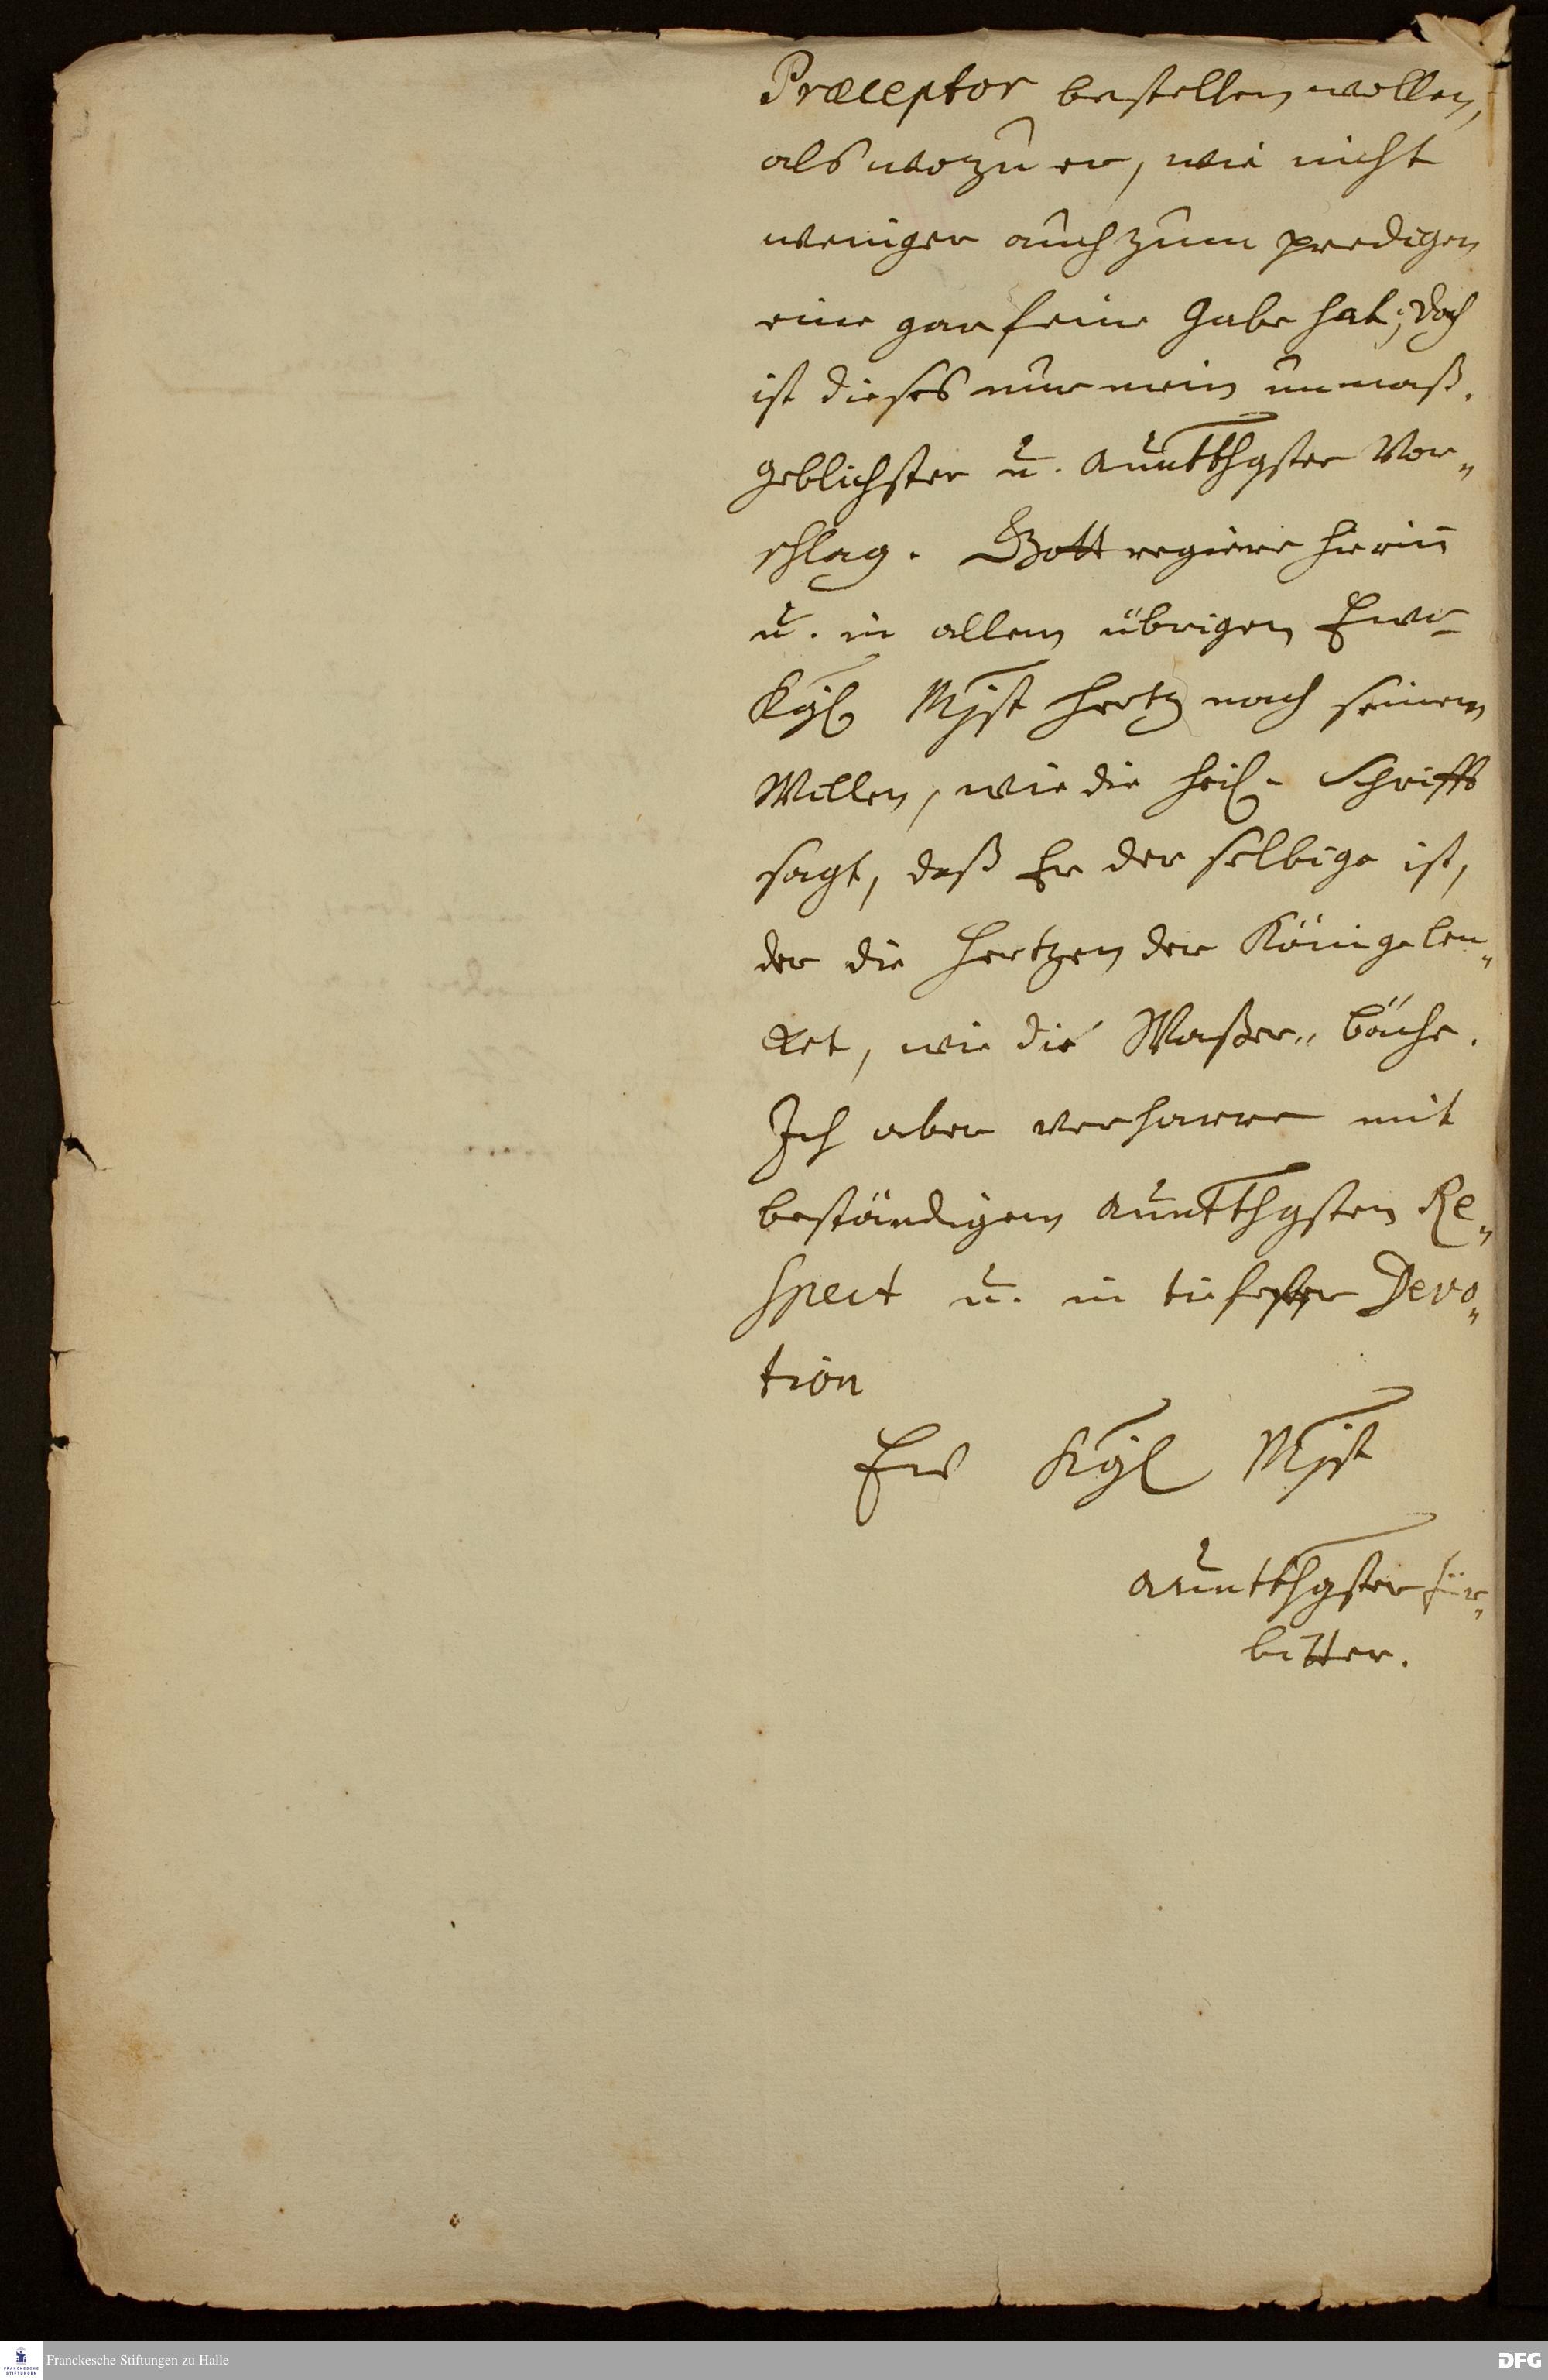 Præceptor bestellen wollen,
als wozu er, wie nicht
weniger auch zum predigen
eine gar feine Gabe hat; doch
ist dieses nur mein unmaß-
geblichster u. auntthgster Vor-
schlag. Gott regiere hierin
u. in allem übrigen Ewr
Kgl Mjst Hertz nach seinem
Willen, wie die heil. Schrifft
sagt, daß Er der selbige ist,
der die Hertzen der Könige len-
ket, wie die Waßer-bäche.
Ich aber verharre mit
beständigem auntthgsten Re-
spect u. in tiefester Devo-
tion
Ew Kgl Mjst
auntthgster für-
bitter.
Franckesche Stiftungen zu Halle
DFG